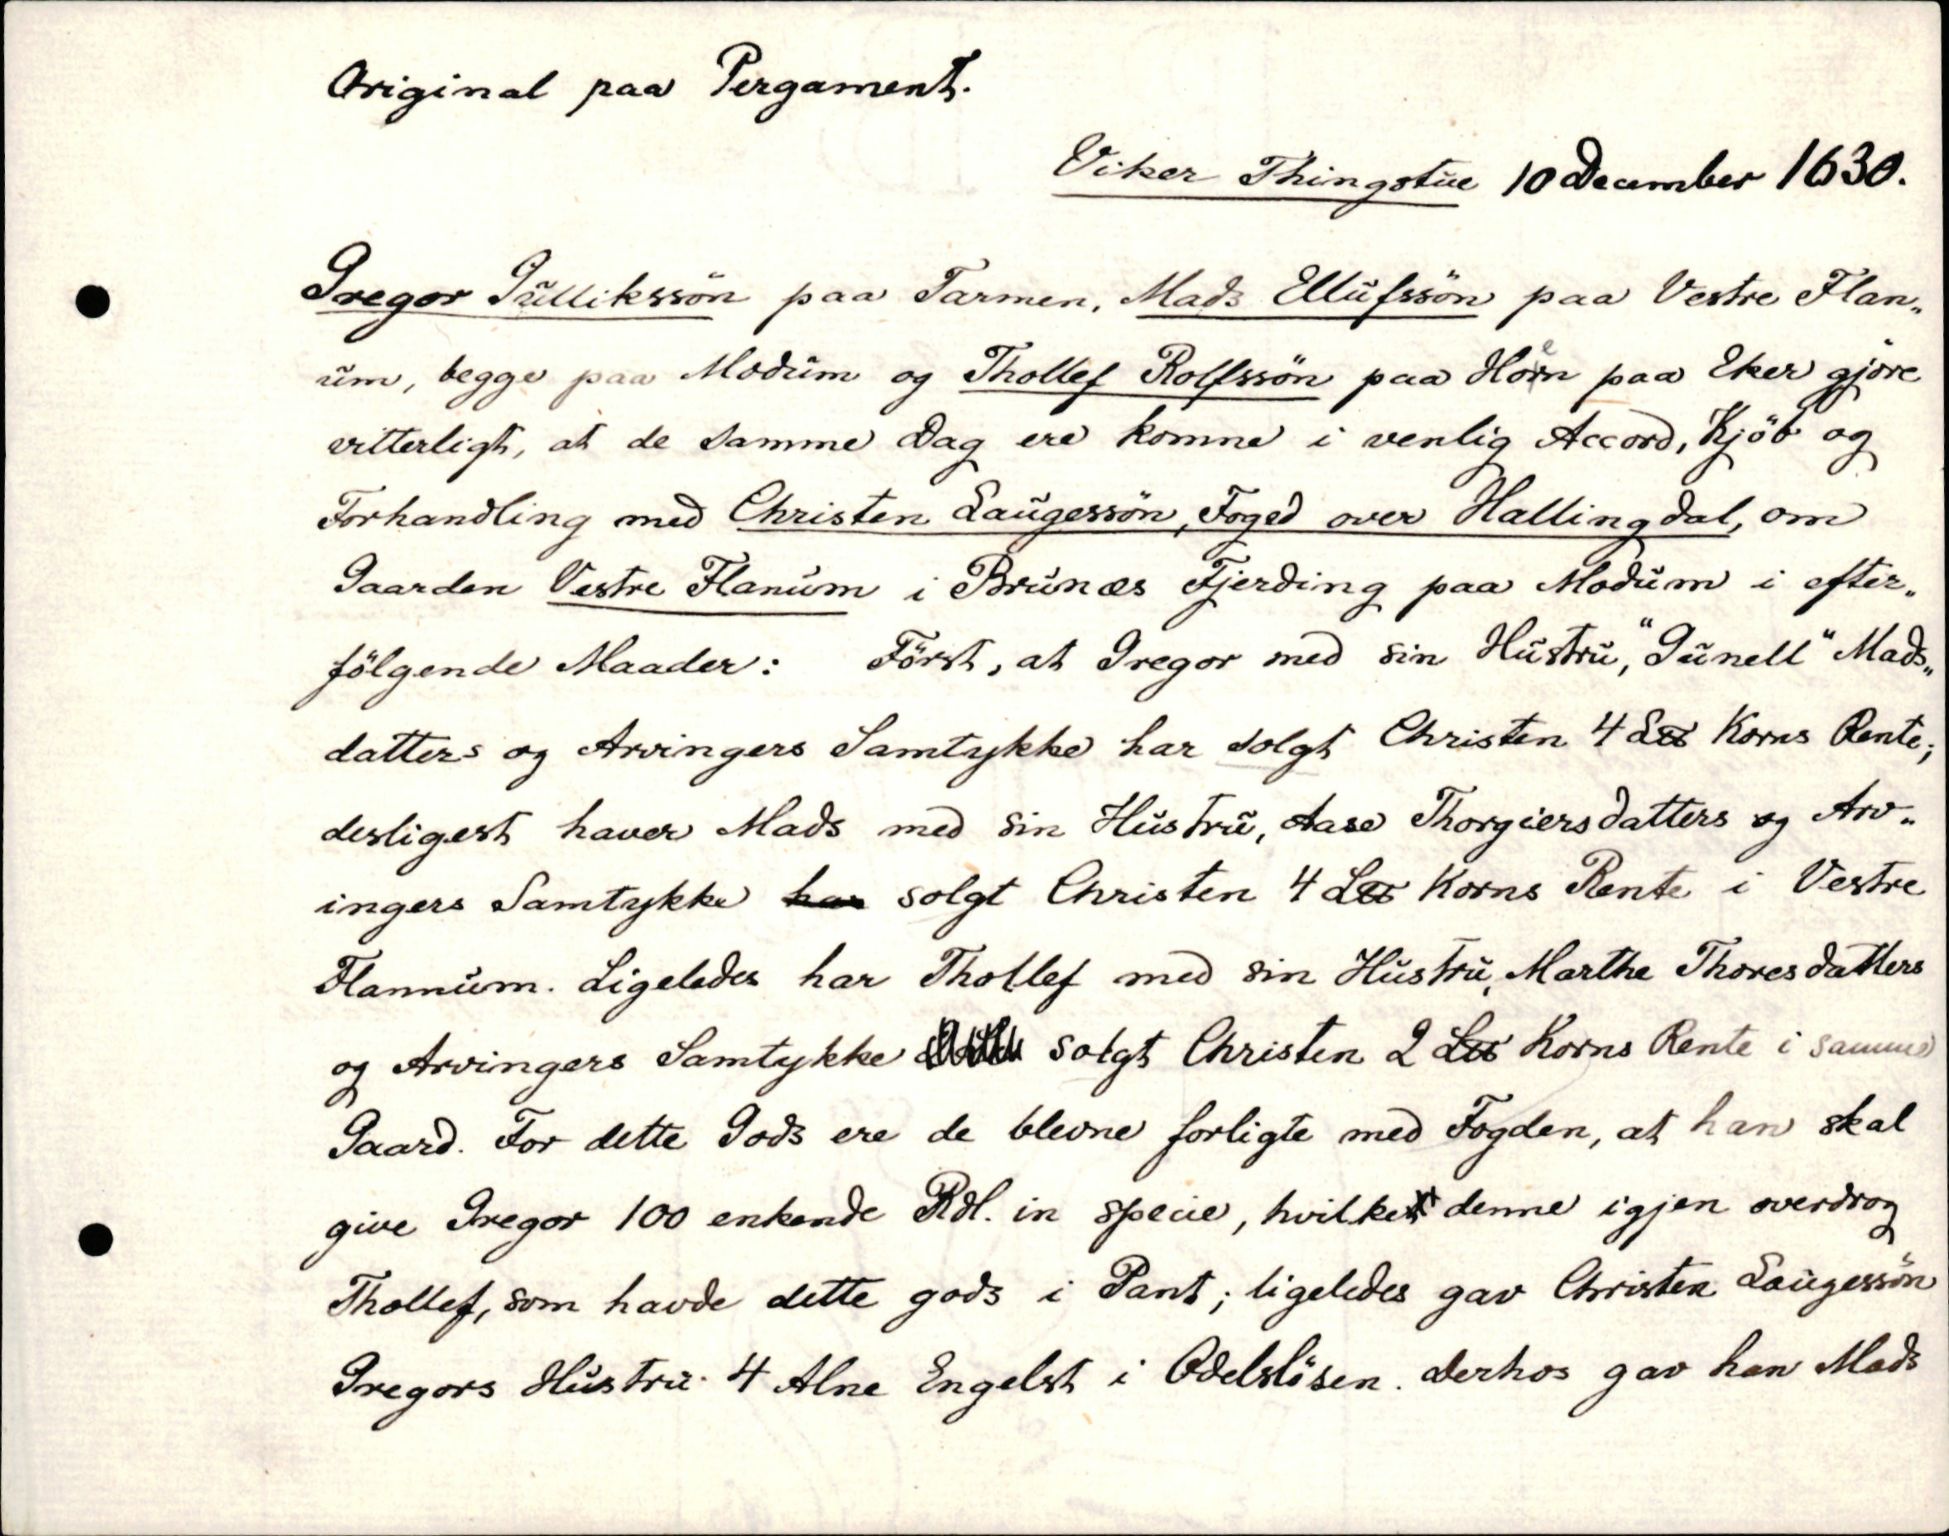 Original paa Pergament.
Viker Thingstue 10 December 1630.
Gregor Gulliksön paa Tarmen, Mads Ellufssön paa Vestre Flan„
um, begge paa Modum og Thollef Rolfssön paa Horn paa Eker gjöre
vitterligt, at de samme Dag ere komne i venlig Accord, Kjöb og
Forhandling med Christen Laugessön, Foged over Hallingdal, om
Gaarden Vestre Flanum i Brunæs Fjerding paa Modum i efter„
fölgende Maader: Först, at Gregor med sin Hustru, "Gunell" Mads„
datters og Arvingers Samtykke har solgt Christen 4 Korns Rente;
desligest haver Mads med sin Hustru, Aase Thorgiersdatters og Arv„
ingers Samtykke solgt Christen 4 Korns Rente i Vestre
Flannum. Ligeledes har Thollef med sin Hustru, Marthe Thoresdatters
og Arvingers Samtykke solgt Christen 2 Korns Rente i samme
Gaard. For dette Gods ere de blevne forligte med Fogden, at han skal
give Gregor 100 enkende Rdl. in specie, hvilke denne igjen overdrog
Thollef, som havde dette gods i Pant; ligeledes gav Christen Laugessön
Gregors Hustru 4 Alne Engelst i Odelslösen. Derhos gav han Mads